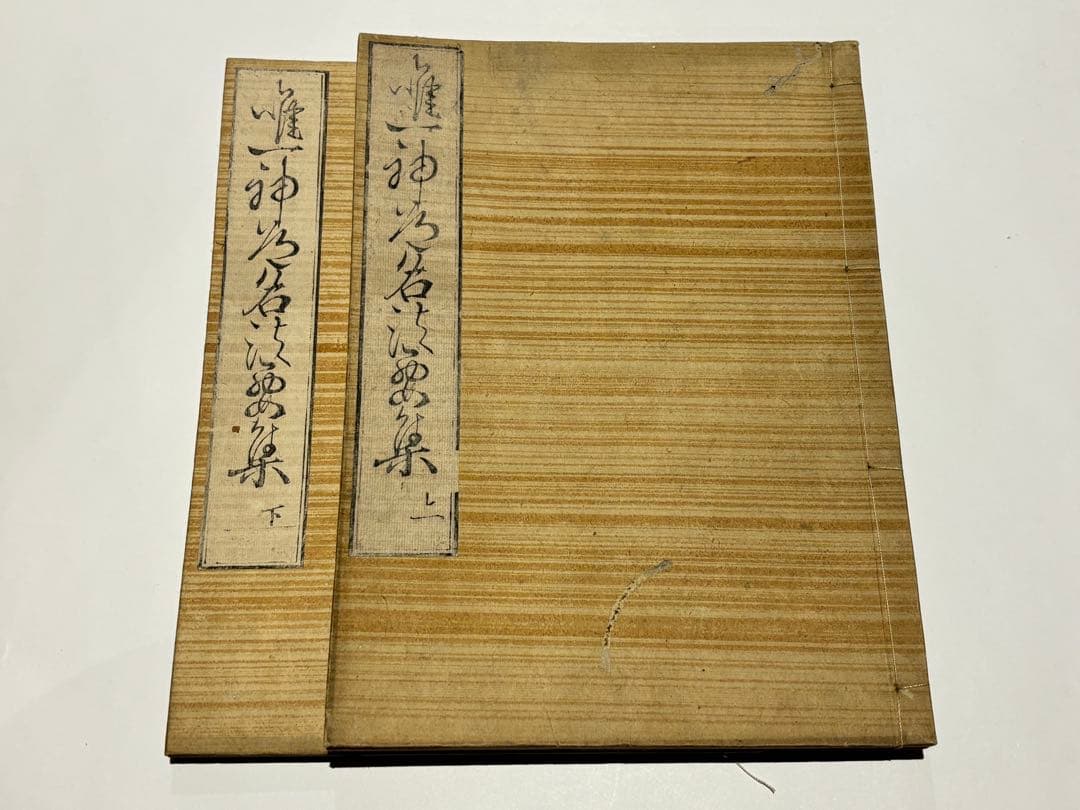 唯一神道名法要集 上
唯一神道名法要集 下